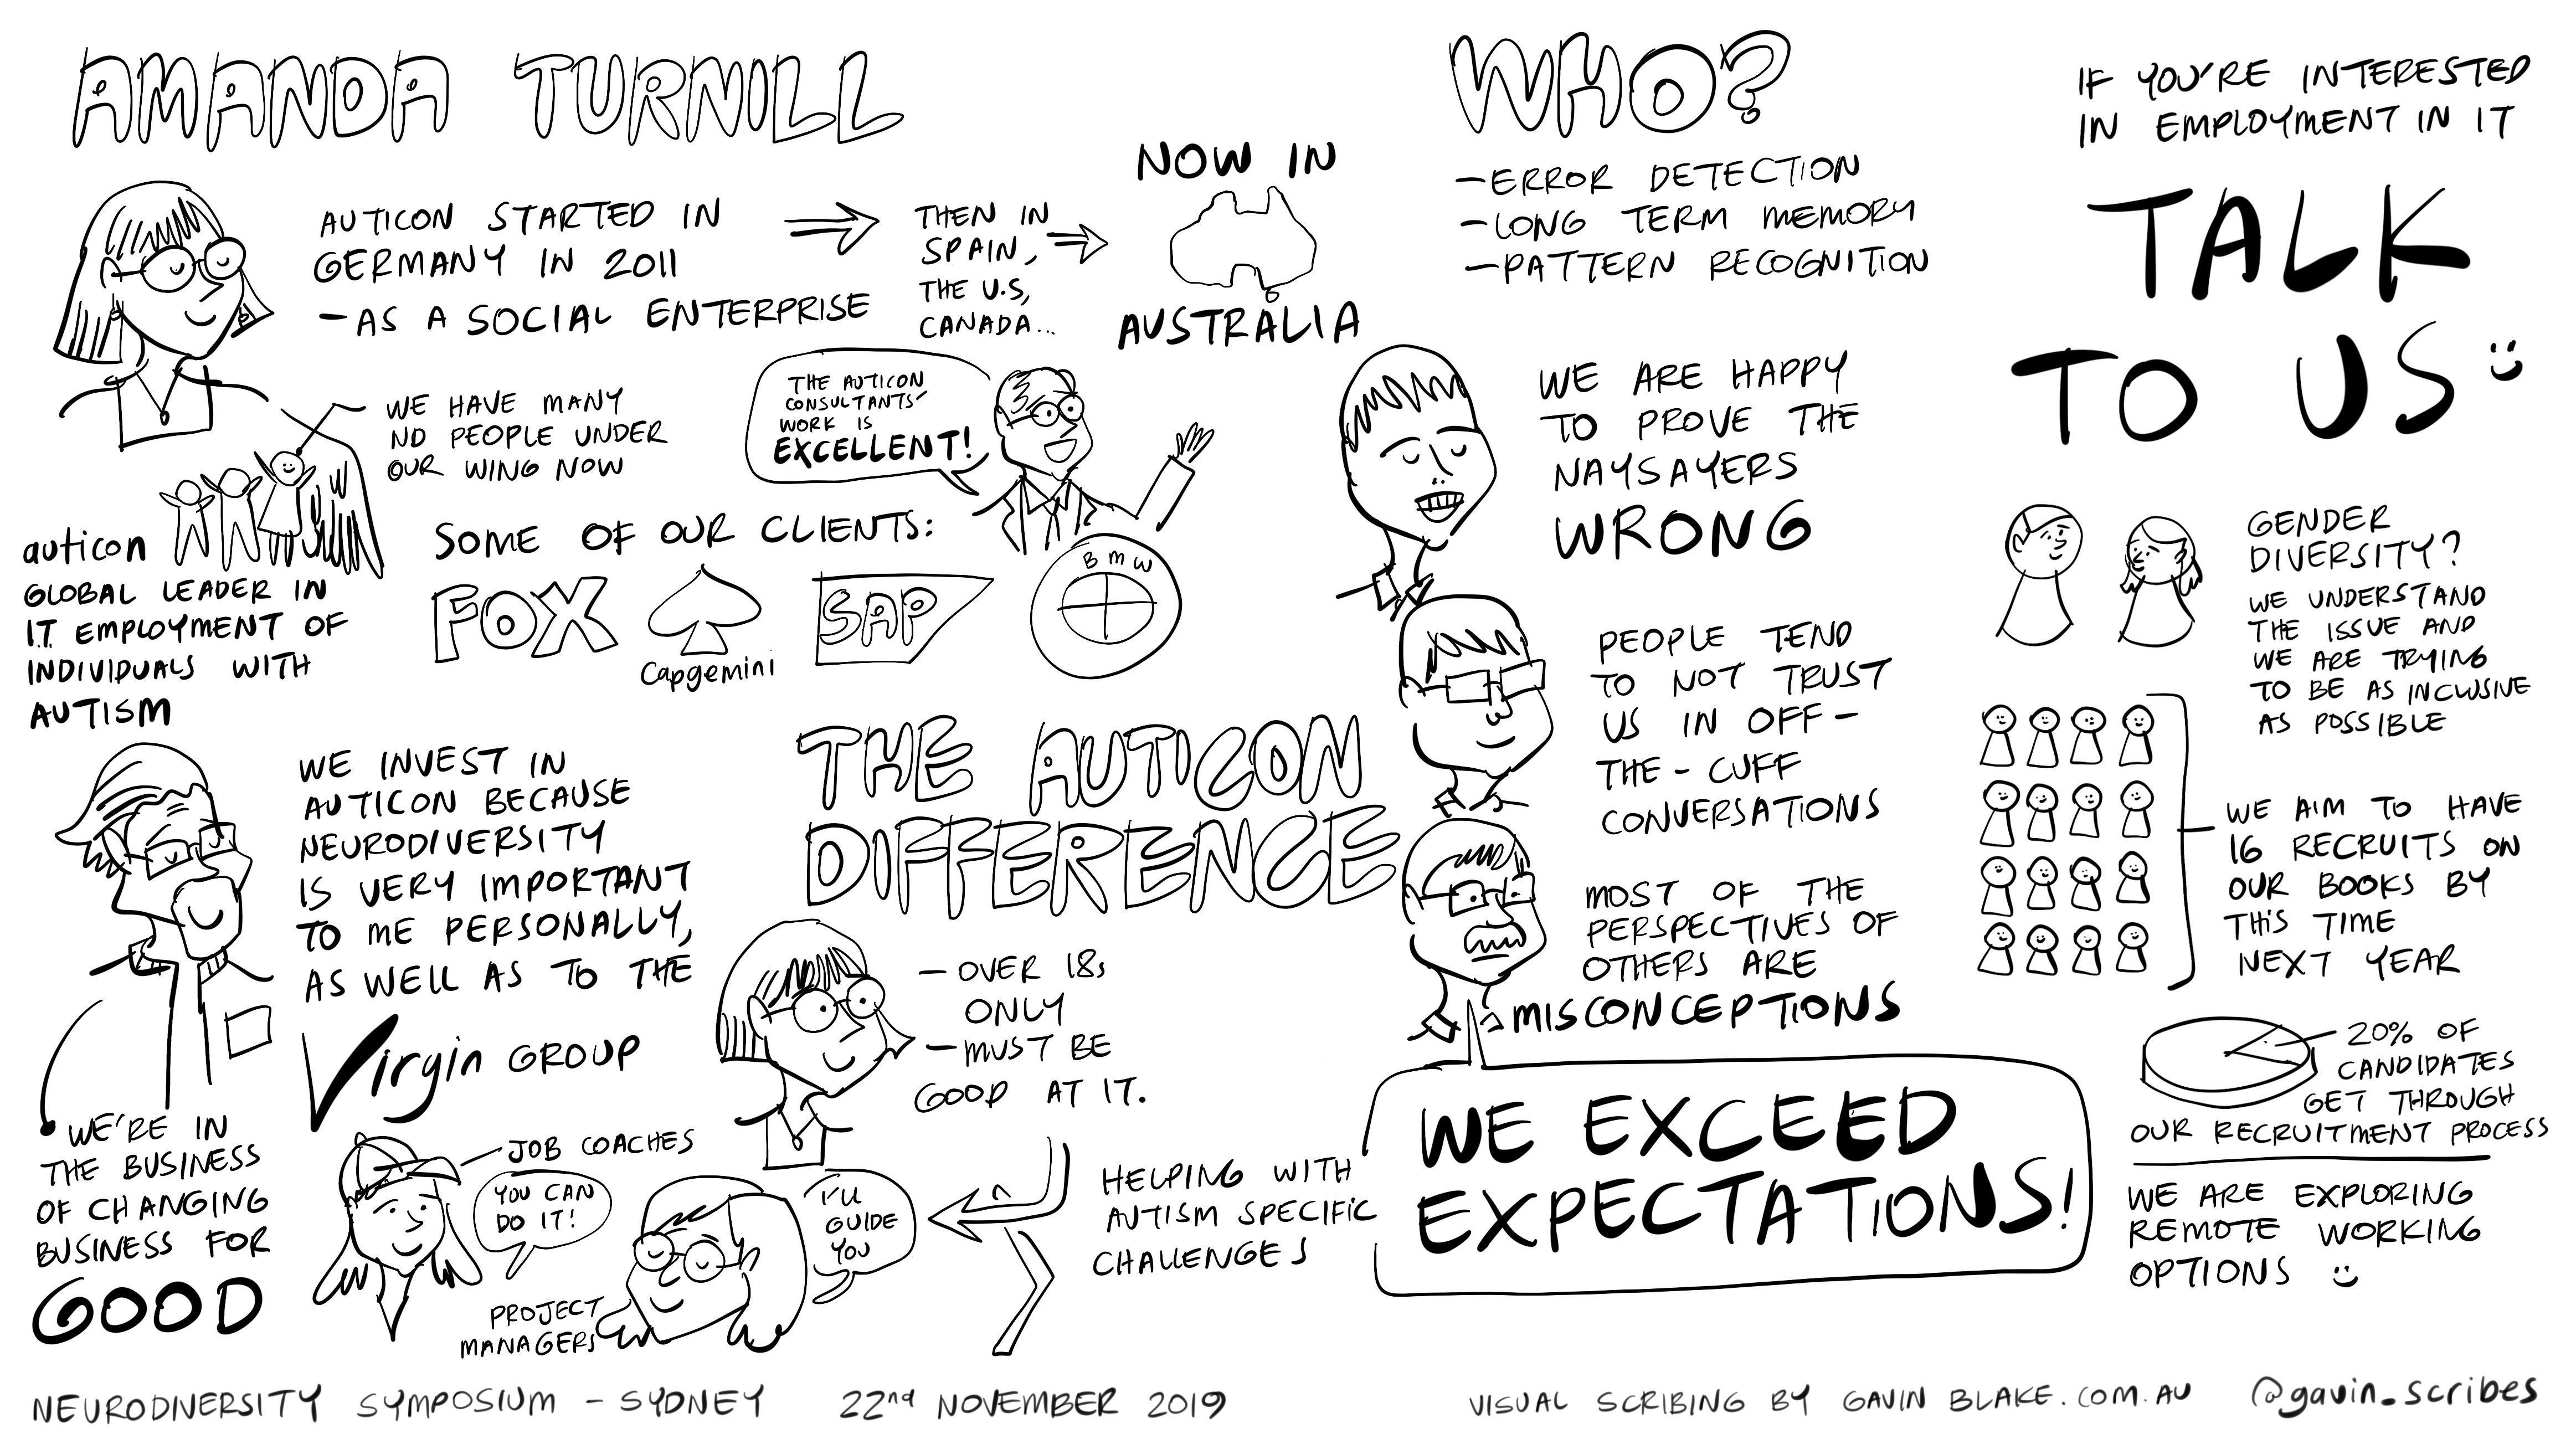 AMANDA TURNILL
AUTICON STARTED IN
GERMANY IN 2011
- AS A SOCIAL ENTERPRISE
THEN IN
SPAIN,
THE U.S,
CANADA...
NOW IN
AUSTRALIA
WE HAVE MANY
ND PEOPLE UNDER
OUR WING NOW
auticon
GLOBAL LEADER IN
I.T EMPLOYMENT OF
INDIVIDUALS WITH
AUTISM
THE AUTICON
CONSULTANTS'
WORK IS
EXCELLENT!
SOME OF OUR CLIENTS:
FOX
Capgemini
SAP
BMW
WE INVEST IN
AUTICON BECAUSE
NEURODIVERSITY
IS VERY IMPORTANT
TO ME PERSONALLY,
AS WELL AS TO THE
Virgin GROUP
WE'RE IN
THE BUSINESS
OF CHANGING
BUSINESS FOR
GOOD
THE AUTICON
DIFFERENCE
- OVER 18s
ONLY
- MUST BE
GOOD AT IT.
JOB COACHES
YOU CAN
DO IT!
PROJECT
MANAGERS
I'LL
GUIDE
YOU
HELPING WITH
AUTISM SPECIFIC
CHALLENGES
WHO?
- ERROR DETECTION
- LONG TERM MEMORY
- PATTERN RECOGNITION
WE ARE HAPPY
TO PROVE THE
NAYSAYERS
WRONG
PEOPLE TEND
TO NOT TRUST
US IN OFF-
THE-CUFF
CONVERSATIONS
MOST OF THE
PERSPECTIVES OF
OTHERS ARE
MISCONCEPTIONS
WE EXCEED
EXPECTATIONS!
IF YOU'RE INTERESTED
IN EMPLOYMENT IN IT
TALK
TO US
GENDER
DIVERSITY?
WE UNDERSTAND
THE ISSUE AND
WE ARE TRYING
TO BE AS INCLUSIVE
AS POSSIBLE
WE AIM TO HAVE
16 RECRUITS ON
OUR BOOKS BY
THIS TIME
NEXT YEAR
20% OF
CANDIDATES
GET THROUGH
OUR RECRUITMENT PROCESS
WE ARE EXPLORING
REMOTE WORKING
OPTIONS
NEURODIVERSITY SYMPOSIUM - SYDNEY 22nd NOVEMBER 2019
VISUAL SCRIBING BY GAVIN BLAKE.COM.AU @gavin_scribes